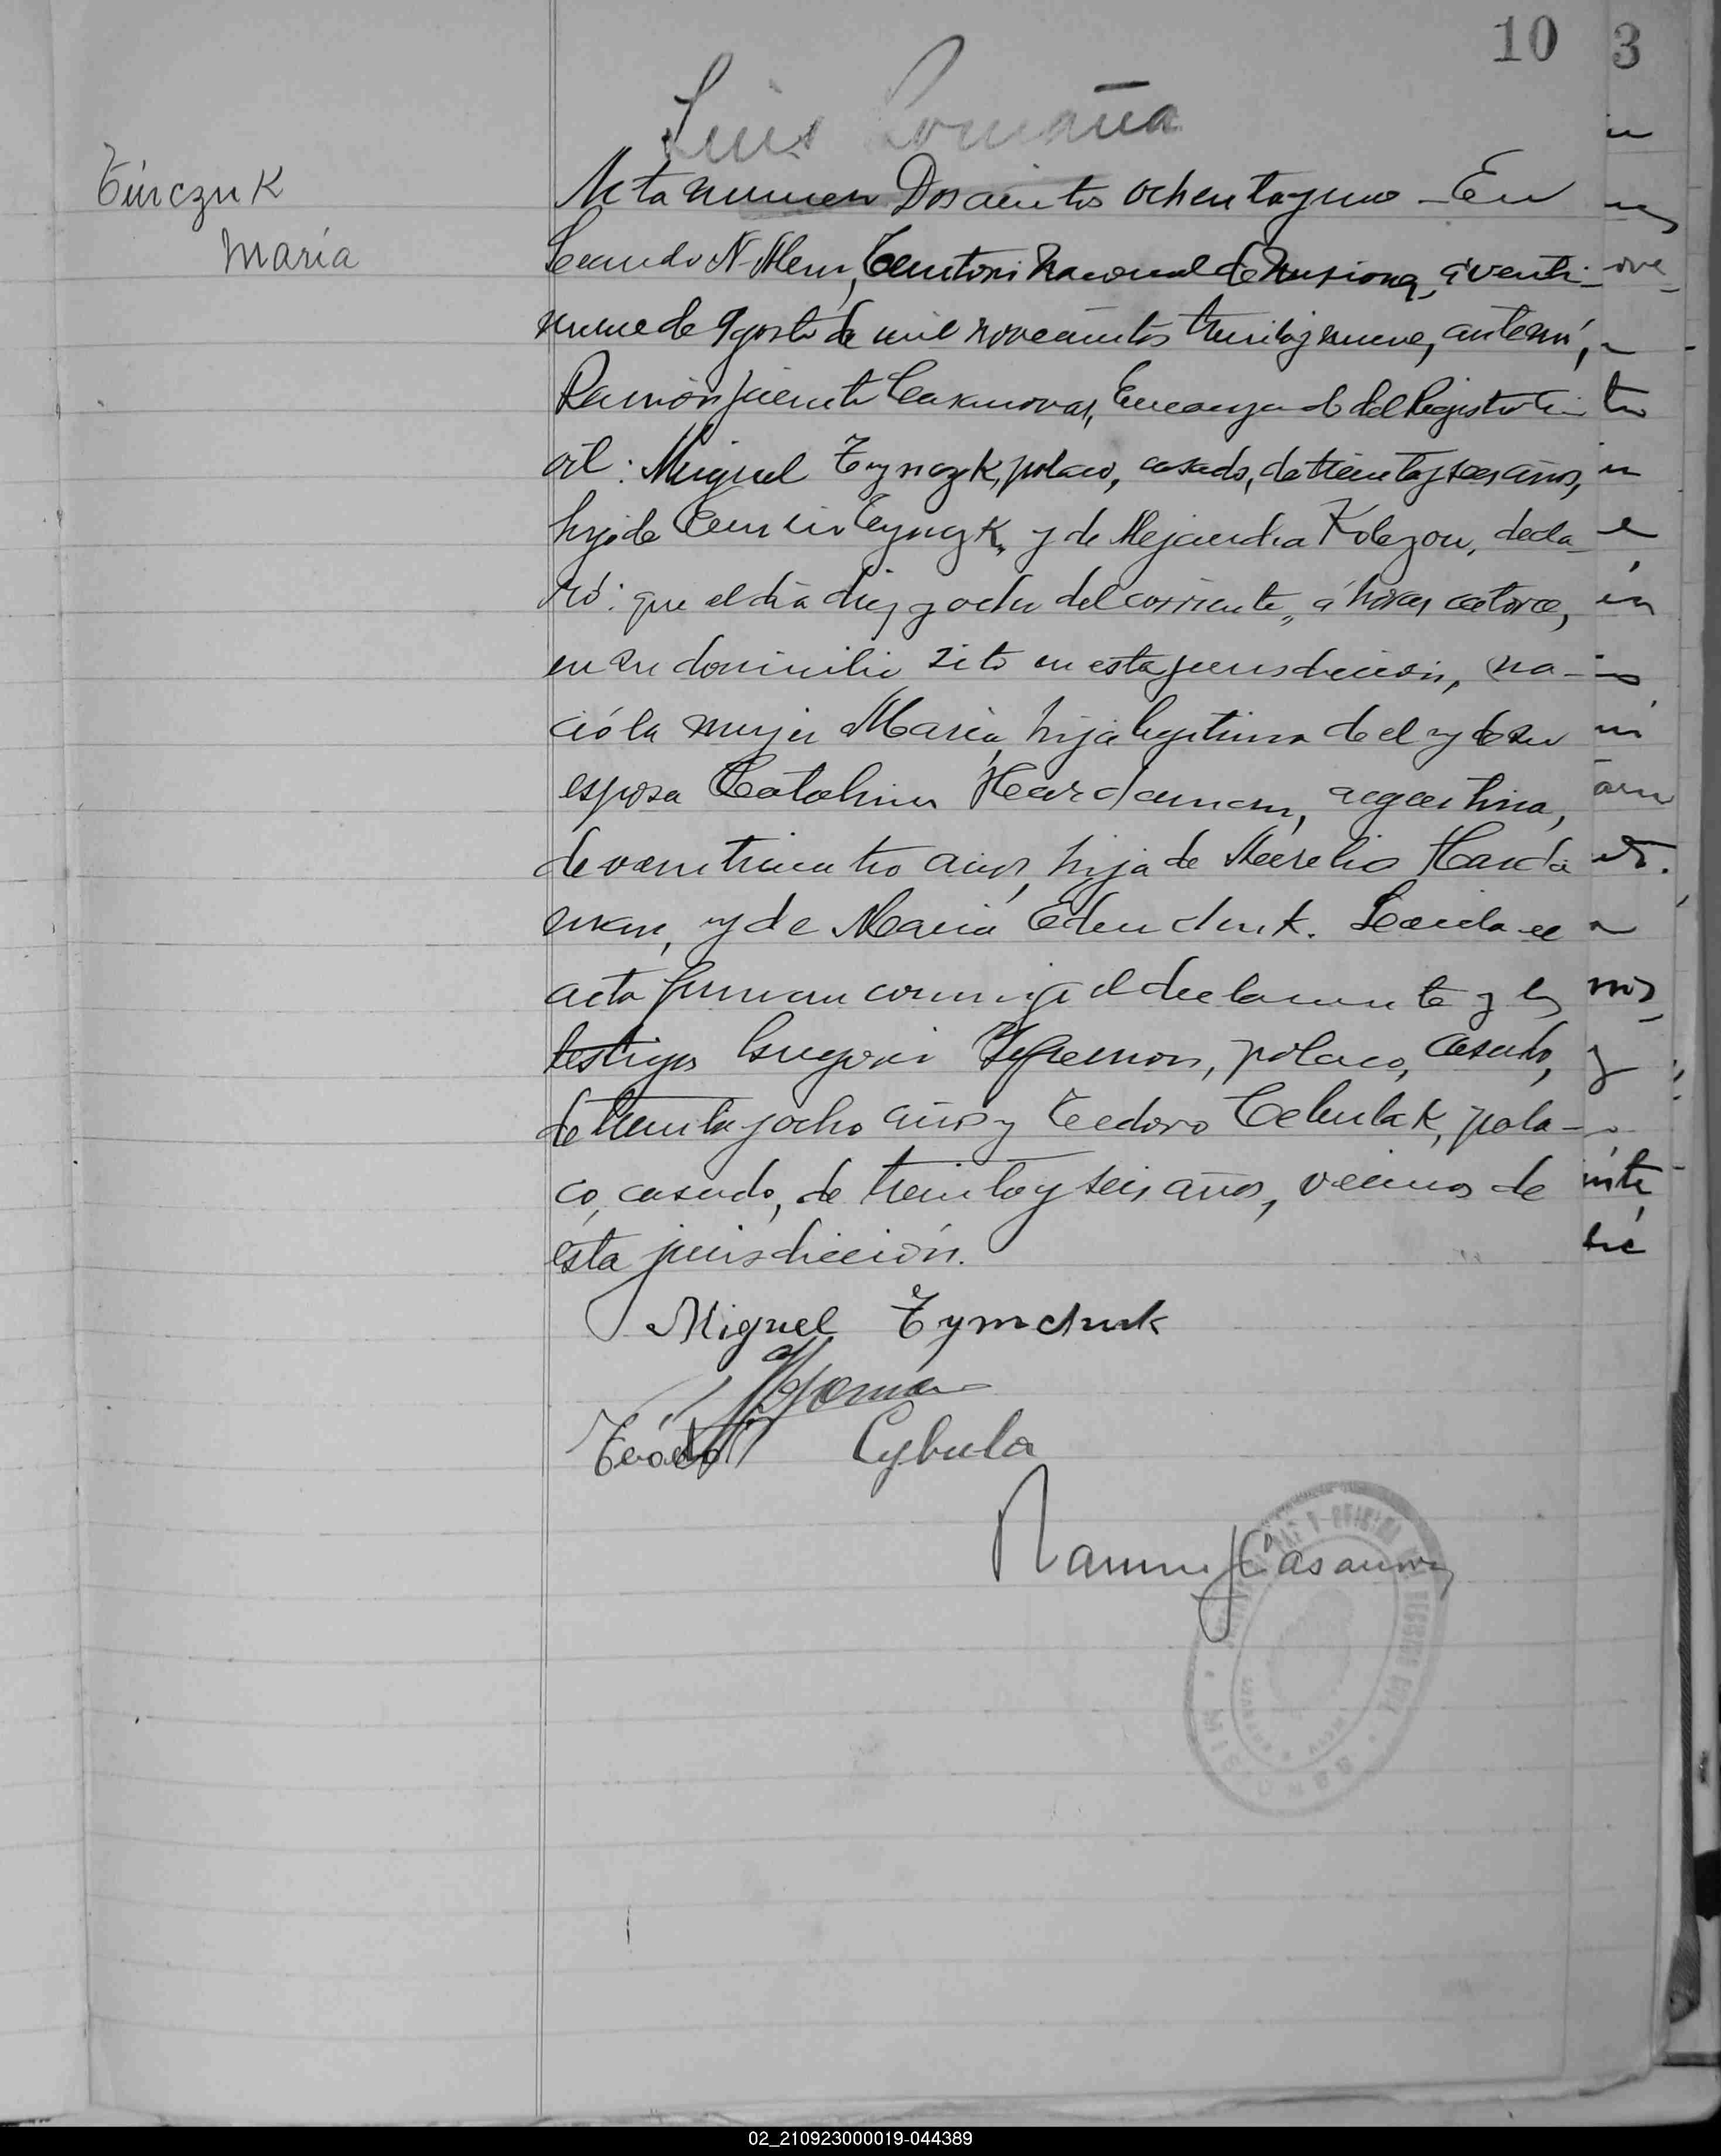 10 3
Luis Lomaña
Túrczuk
María
Acta numero Doscientos ochentayuno - En
Leandro N. Alem, Territorio Nacional de Misiones, á veinti-
nueve de Agosto de mil novecientos treintaynueve, ante mí,
Ramón Jacinto Casanovas, Encargado del Registro Ci-
vil: Miguel Tynczk, polaco, casado, de treintayseis años,
hijo de Tynczk, y de Alejandra Kolezon, decla-
ró: que el dia diez y ocho del corriente, á horas catorce,
en su domicilio sito en esta jurisdicción, na-
ció la mujer María, hija legitima de el y de su
esposa Catalina Hardaman, argentina,
de veinticuatro años, hija de Aurelio Harda
man, y de María Edenchuk. Leida el
acta firman conmigo el declarante y los
testigos Gregorio Yefremon, polaco, casado,
de treintayocho años y Teodoro Cebulak, pola-
co, casado, de treintayseis años, vecinos de
esta jurisdicción.
Miguel Tymchuk
Teodor Cybula
Ramón J Casanovas
MISIONES
02_210923000019-044389